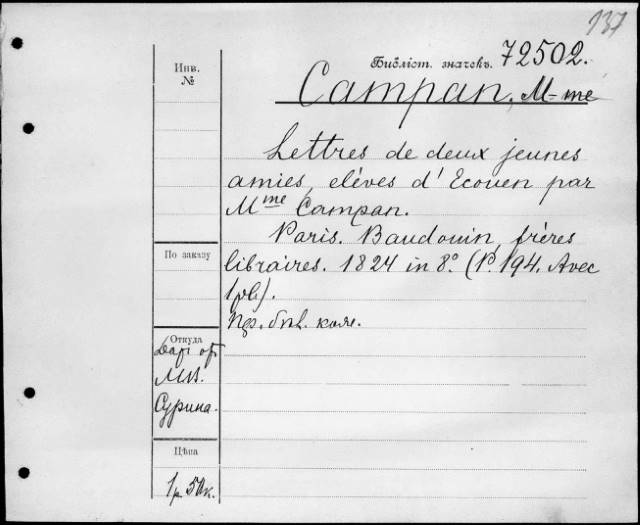 137
Библіот. значекъ. 72502.
Campan, M-me
Инв.
№
Lettres de deux jeunes
amies, elèves d'Ecouen par
Mme Campan.
Paris. Baudouin, frères
libraires. 1824 in 8º (P. 194. Avec
1 pl.).
По заказу
Откуда
Даръ отъ
Сурина.
Цѣна
1р. 50к.